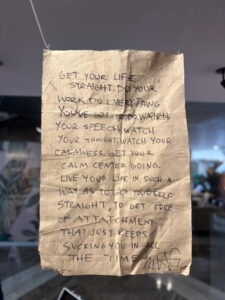 GET YOUR LIFE
STRAIGHT. DO YOUR
WORK. DO EVERYTHING
YOU'VE GOT TO DO. WATCH
YOUR SPEECH. WATCH
YOUR THOUGHT. WATCH YOUR
CALMNESS. GET YOUR
CALM CENTER GOING.
LIVE YOUR LIFE IN SUCH A
WAY AS TO GET YOURSELF
STRAIGHT, TO GET FREE
OF ATTATCHMENT
THAT JUST KEEPS
SUCKING YOU IN ALL
THE TIME